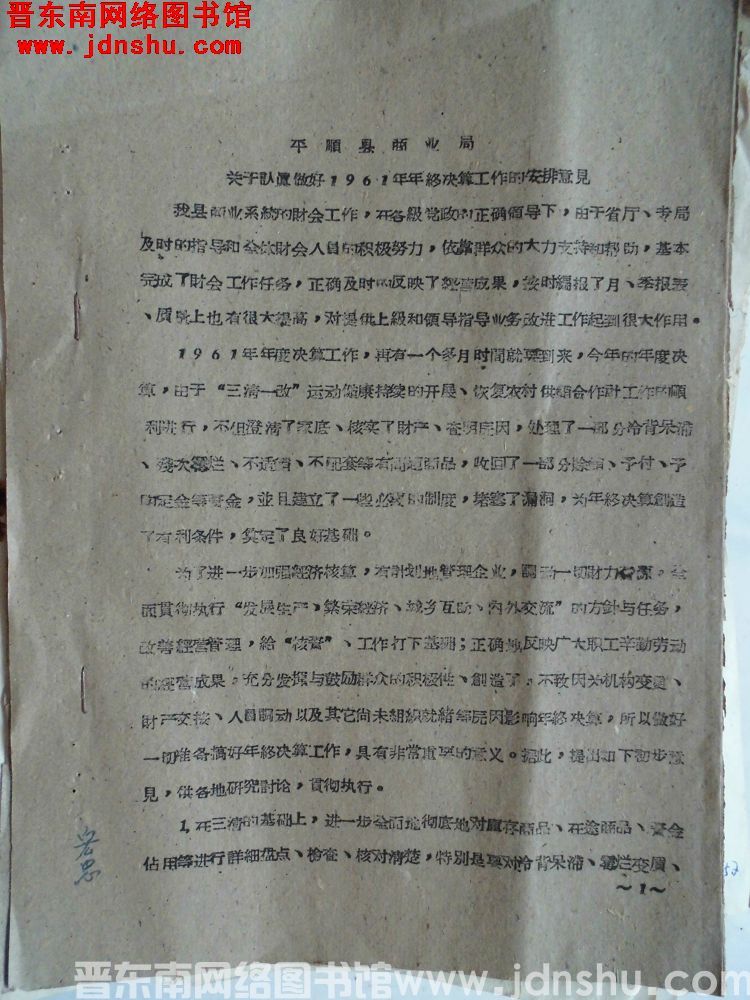 晋东南网络图书馆
www.jdnshu.com
平順县商业局
关于认眞做好1961年年終决算工作的安排意見
我县商业系統的財会工作，在各級党政的正确領导下，由于省厅、专局
及时的指导和全体財会人員的积极努力，依靠群众的大力支持和帮助，基本
完成了財会工作任务，正确及时的反映了經营成果，按时編报了月、季报表
、质量上也有很大提高，对提供上級和領导指导业务改进工作起到很大作用。
1961年年度决算工作，再有一个多月时間就要到来，今年的年度决
算，由于“三清一改”运动健康持续的开展、恢复农村供銷合作社工作的順
利进行，不但澄清了家底、核实了財产、查明原因，处理了一部分冷背呆滞
、殘次霉烂、不适銷、不配套等有問題商品，收回了一部分賒銷、予付、予
购定金等資金，並且建立了一些必要的制度，堵塞了漏洞，为年終决算創造
了有利条件，奠定了良好基础。
为了进一步加强經济核算，有計划地管理企业，調动一切財力資源，全
面貫彻执行“发展生产、繁荣經济、城乡互助、內外交流”的方針与任务，
改善經营管理，給“核資”、工作打下基础；正确地反映广大职工辛勤劳动
的經营成果，充分发揮与鼓励群众的积极性、創造了，不致因为机构变更、
財产交接、人員調动以及其它尙未組織就緒等原因影响年終决算，所以做好
一切准备搞好年終决算工作，具有非常重要的意义。据此，提出如下初步意
見，供各地研究討論，貫彻执行。
1.在三清的基础上，进一步全面地彻底地对庫存商品、在途商品、資金
佔用等进行詳細盘点、检查、核对清楚，特別是要对冷背呆滞、霉烂变质、
～1～
晋东南网络图书馆www.jdnshu.com